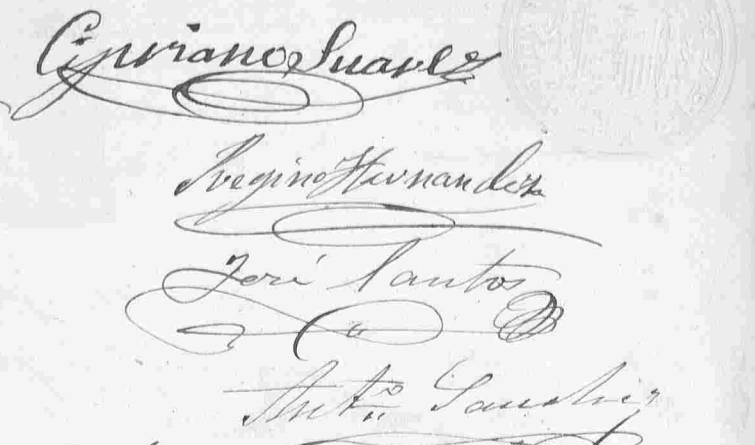 Cipriano Suarez
Regino Hernandez
José Santos
Antº Sanchez